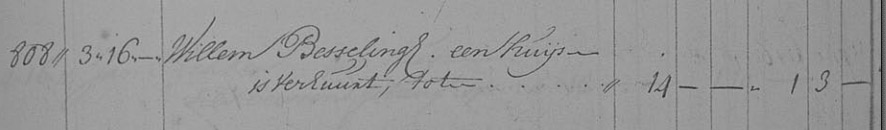 808 〃 3 〃 16 〃 — 〃 Willem Besseling. een huijs
is verhuurt, tot . . . . . 〃 14 — — 〃 1 3 —